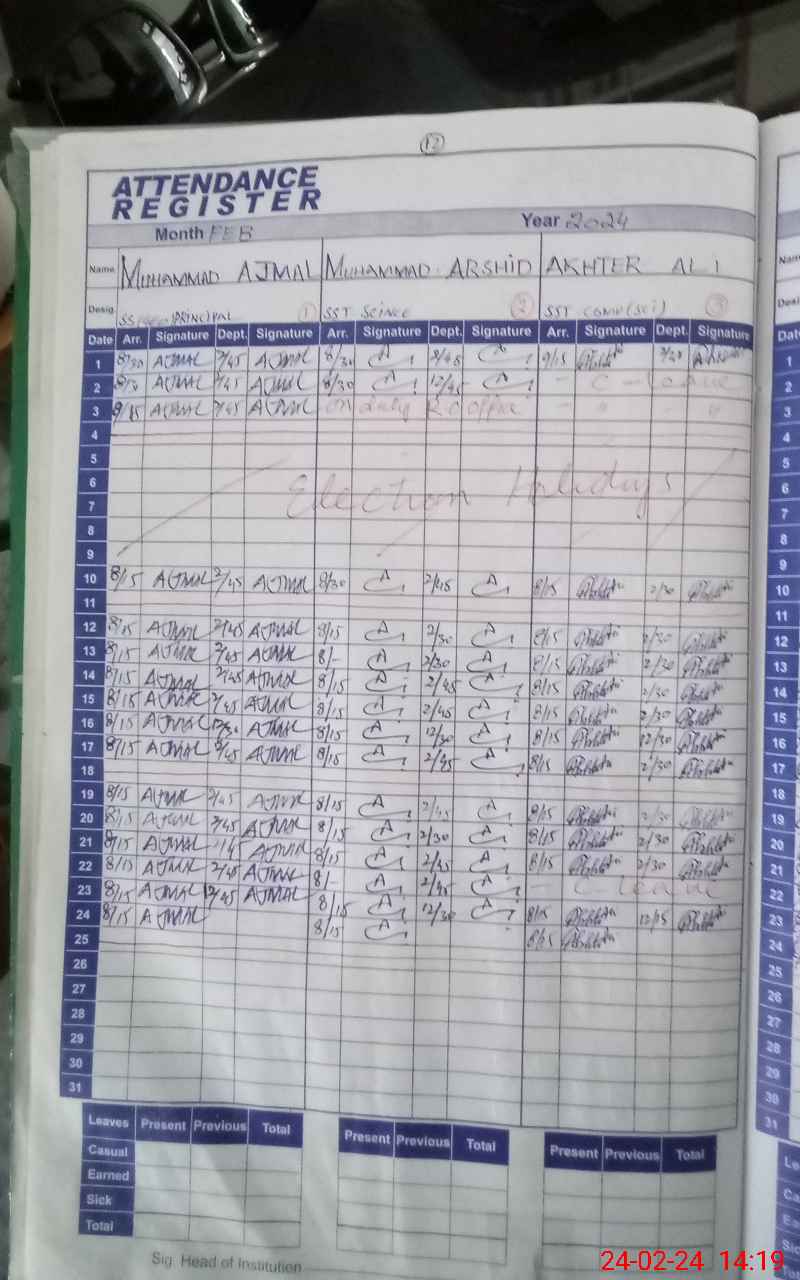 12
ATTENDANCE
REGISTER
Month FEB Year 2024
Name MUHAMMAD AJMAL MUHAMMAD ARSHID AKHTER ALI
Desig. PRINCIPAL 1 SST SCINCE 2 SST COMP(SCI) 3
Date Arr. Signature Dept. Signature Arr. Signature Dept. Signature Arr. Signature Dept. Signature
1 8/30 AJMAL 2/45 AJMAL 8/30 A 2/45 A 9/15 2/30
2 AJMAL 2/45 AJMAL 8/30 A 12/45 A – C – leave
3 AJMAL 2/45 AJMAL on duty R.O office – " – "
4
5
6 Election Holidays
7
8
9
10 8/15 AJMAL 2/45 AJMAL 8/30 A 2/45 A 8/15 2/30
11
12 8/15 AJMAL 2/45 AJMAL 8/15 A 2/30 A 8/15 2/30
13 8/15 AJMAL 2/45 AJMAL 8/– A 2/30 A 8/15 2/30
14 8/15 AJMAL 2/45 AJMAL 8/15 A 2/45 A 8/15 2/30
15 8/15 AJMAL 2/45 AJMAL 8/15 A 2/45 A 8/15 2/30
16 8/15 AJMAL AJMAL 8/15 A 12/30 A 8/15 12/30
17 8/15 AJMAL 2/45 AJMAL 8/15 A 2/45 A 8/15 2/30
18
19 8/15 AJMAL 2/45 AJMAL 8/15 A 2/45 A 8/15 2/30
20 8/15 AJMAL 2/45 AJMAL 8/15 A 2/30 A 8/15 2/30
21 8/15 AJMAL 2/45 AJMAL 8/15 A 2/45 A 8/15 2/30
22 8/15 AJMAL 2/45 AJMAL 8/– A 2/45 A – C leave
23 8/15 AJMAL 12/45 AJMAL 8/15 A 12/30 A 8/15 12/15
24 8/15 AJMAL 8/15 A 8/15
25
26
27
28
29
30
31
Leaves Present Previous Total Present Previous Total Present Previous Total
Casual
Earned
Sick
Total
Sig. Head of Institution
24-02-24 14:19